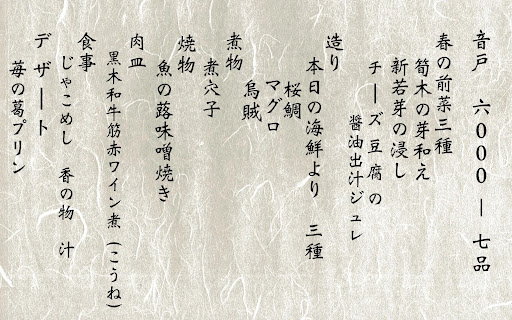 音戸　六000ー七品
春の前菜三種
筍木の芽和え
新若芽の浸し
チーズ豆腐の
醬油出汁ジュレ
造り
本日の海鮮より　三種
桜鯛
マグロ
烏賊
煮物
煮穴子
焼物
魚の蕗味噌焼き
肉皿
黒木和牛筋赤ワイン煮（こうね）
食事
じゃこめし　香の物　汁
デザート
苺の葛プリン